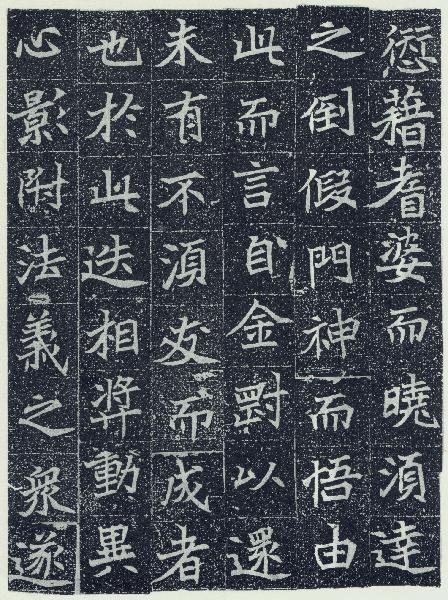 愆藉耆婆而曉須達
之倒假門神而悟由
此而言自金剛以還
未有不須友而成者
也於此迭相獎動異
心影附法義之衆遂